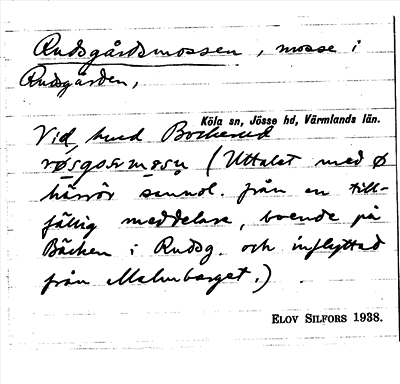 Rudsgårdsmossen, mosse i
Rudsgården,
Köla sn, Jösse hd, Värmlands län.
Vid, hvid
(Uttalet med ø
härrör sannol. från en till-
fällig meddelare, boende på
Bäcken i Rudsg. och inflyttad
från Malmberget.)
ELOV SILFORS 1938.